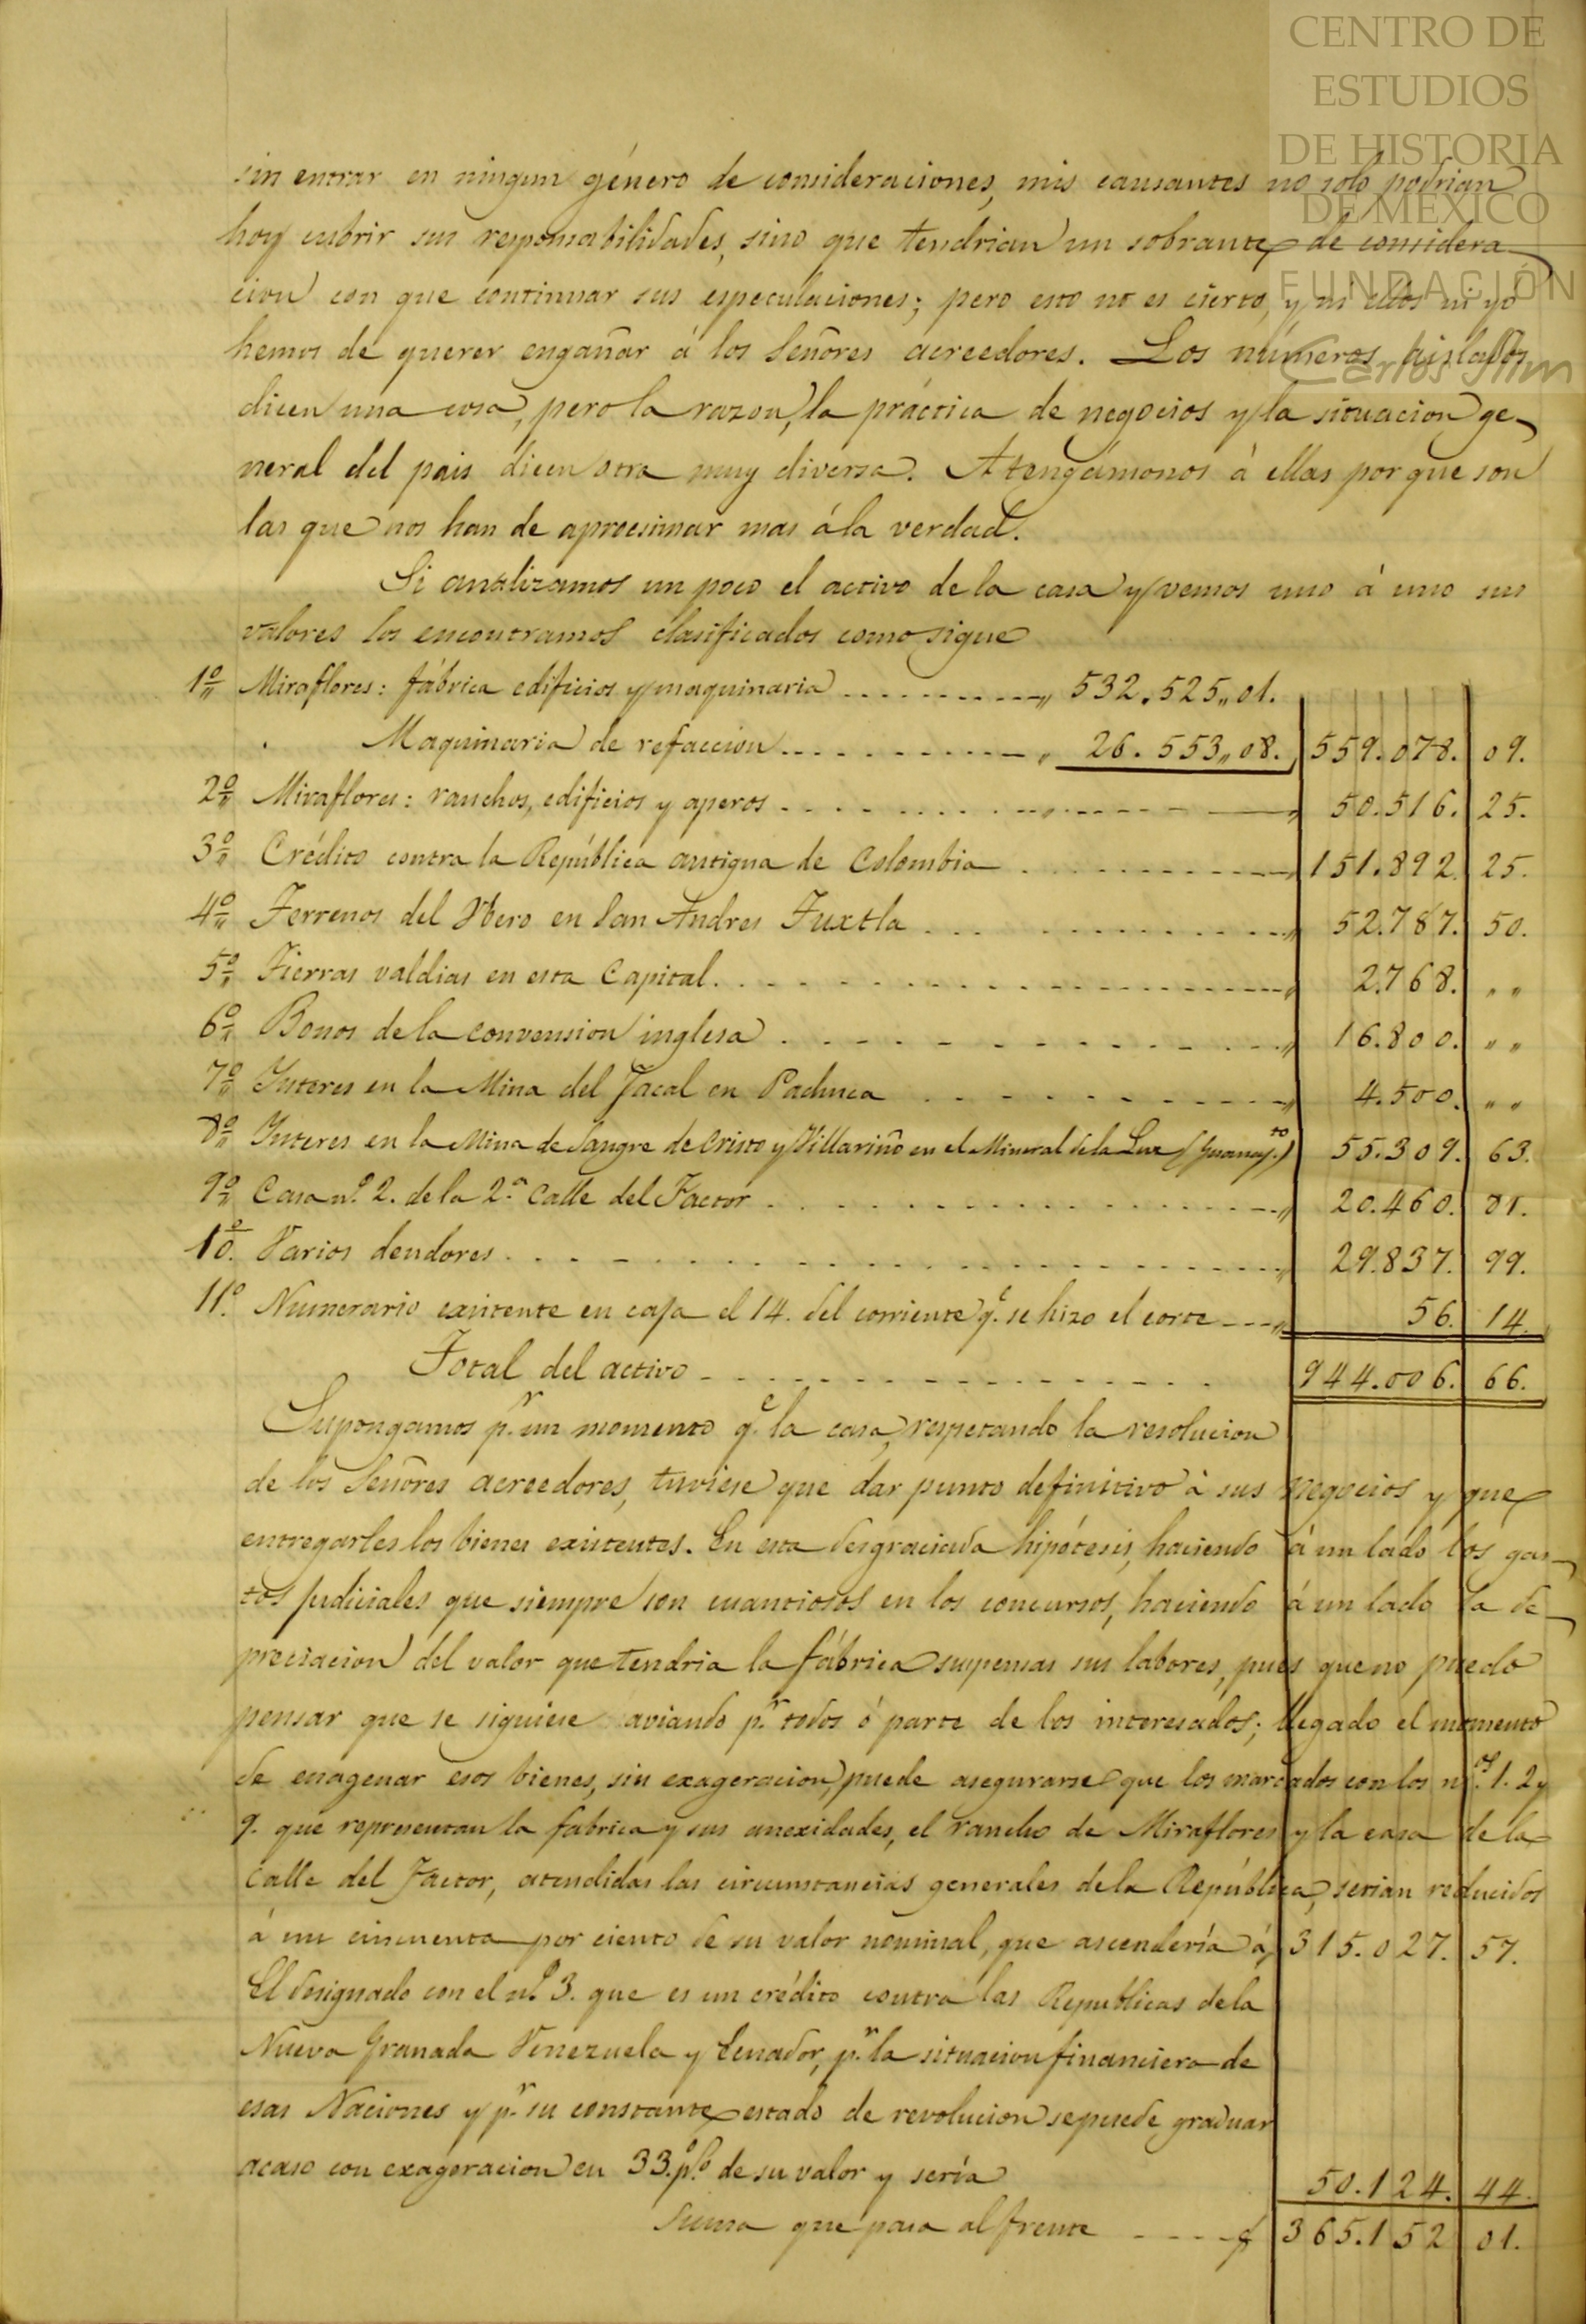 CENTRO DE
ESTUDIOS
DE HISTORIA
DE MÉXICO
FUNDACIÓN
Carlos Slim
sin entrar en ningun género de consideraciones, mis causantes no solo podrian
hoy cubrir sus responsabilidades, sino que tendrian un sobrante de considera
cion con que continuar sus especulaciones; pero esto no es cierto, y ni ellos ni yo
hemos de querer engañar á los Señores acreedores. Los números aislados
dicen una cosa, pero la razon, la práctica de negocios y la situacion ge-
neral del pais dicen otra muy diversa. Atengámonos á ellas por que son
las que nos han de aprocsimar mas á la verdad.
Si analizamos un poco el activo de la casa y vemos uno á uno sus
valores los encontramos clasificados como sigue
1º Miraflores: fábrica edificios y maquinaria ........... „ 532.525„01.
Maquinaria de refaccion ........... „ 26.553„08. 559.078. 09.
2º Miraflores: ranchos, edificios y aperos ........... „ 50.516. 25.
3º Crédito contra la República antigua de Colombia ........... „ 151.892. 25.
4º Terrenos del Ybero en San Andres Tuxtla ........... „ 52.787. 50.
5º Tierras valdias en esta Capital ........... „ 2.768. „ „
6º Bonos de la convension inglesa ........... „ 16.800. „ „
7º Ynteres en la Mina del Jacal en Pachuca ........... „ 4.500. „ „
8º Ynteres en la Mina de Sangre de Cristo y Villariño en el Mineral de la Luz (Guanajto.) 55.309. 63.
9º Casa nº 2. de la 2ª Calle del Factor ........... „ 20.460. 81.
10º. Varios deudores ........... „ 29.837. 99.
11º. Numerario existente en caja el 14. del corriente qe. se hizo el corte ---„ 56. 14.
Total del activo ........... 944.006. 66.
Supongamos pr. un momento qe. la casa, respetando la resolucion
de los Señores acreedores, tuviese que dar punto definitivo á sus negocios y que
entregarles los bienes existentes. En esta desgraciada hipótesis, haciendo á un lado los gas-
tos judiciales que siempre son cuantiosos en los concursos, haciendo á un lado la de-
preciacion del valor que tendria la fábrica suspensas sus labores, pues que no puedo
pensar que se siguiese aviando pr. todos ó parte de los interesados; llegado el momento
de enagenar esos bienes, sin exageracion, puede asegurarse que los marcados con los nos. 1. 2 y
9. que representan la fabrica y sus anexidades, el rancho de Miraflores y la casa de la
Calle del Factor, atendidas las circunstancias generales de la República, serian reducidos
á un cincuenta por ciento de su valor nominal, que ascendería á, 315.027. 57.
El designado con el nº 3. que es un crédito contra las Republicas de la
Nueva Granada Venezuela y Ecuador, pr. la situacion financiera de
esas Naciones y pr. su constante estado de revolucion se puede graduar
acaso con exageracion en 33. p.º de su valor y sería 50.124. 44.
Suma que pasa al frente ----$ 365.152 01.